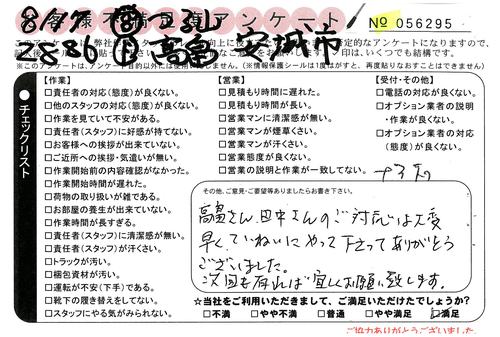 お客様不満足度アンケート
No 056295
8/17
安城市
●チェックリスト
【作業】
□責任者の対応(態度)が良くない。
□他のスタッフの対応(態度)が良くない。
□作業を見ていて不安がある。
□責任者(スタッフ)に好感が持てない。
□お客様への挨拶が出来ていない。
□ご近所への挨拶・気遣いが無い。
□作業開始前の内容確認がなかった。
□作業開始時間が遅れた。
□荷物の取り扱いが雑である。
□お部屋の養生が出来ていない。
□作業時間が長すぎる。
□責任者(スタッフ)に清潔感が無い。
□責任者(スタッフ)が汗くさい。
□トラックが汚い。
□梱包資材が汚い。
□運転が不安(下手)である。
□靴下の履き替えをしてない。
□スタッフにやる気がみられない。
【営業】
□見積もり時間に遅れた。
□見積もり時間が長い。
□営業マンに清潔感が無い。
□営業マンが煙草くさい。
□営業マンが汗くさい。
□営業態度が良くない。
□営業の説明と作業が一致してない。
【受付・その他】
□電話の対応が良くない。
□オプション業者の説明
・作業が良くない。
□オプション業者の対応
(態度)が良くない。
その他、ご意見・ご要望等ありましたらお書き下さい。
高畠さん、田中さんのご対応は大変
早く、ていねいにやって下さってありがとう
ございました。
次回も有れば宜しくお願い致します。
☆当社をご利用いただきまして、ご満足いただけたでしょうか?
□不満 □やや不満 □普通 □やや満足 ☑満足
ご協力ありがとうございました。